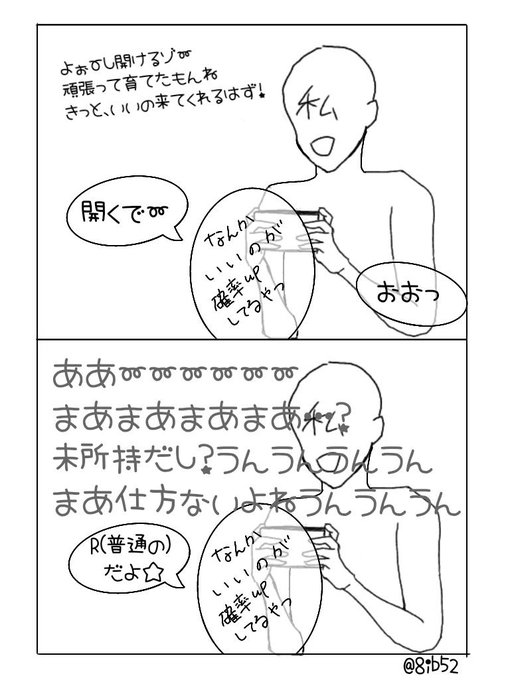 よぉーし開けるゾ〰
頑張って育てたもんね
きっと、いいの来てくれるはず!
私
開くで〰
なんか
いいのが
確率up
してるやつ
おおっ
ああ〰〰〰〰〰〰
まあまあまあまあ…?
私
未所持だし?うんうんうんうん
まあ仕方ないよねうんうんうん
R(普通の)
だよ☆
なんか
いいのが
確率up
してるやつ
@8ib52